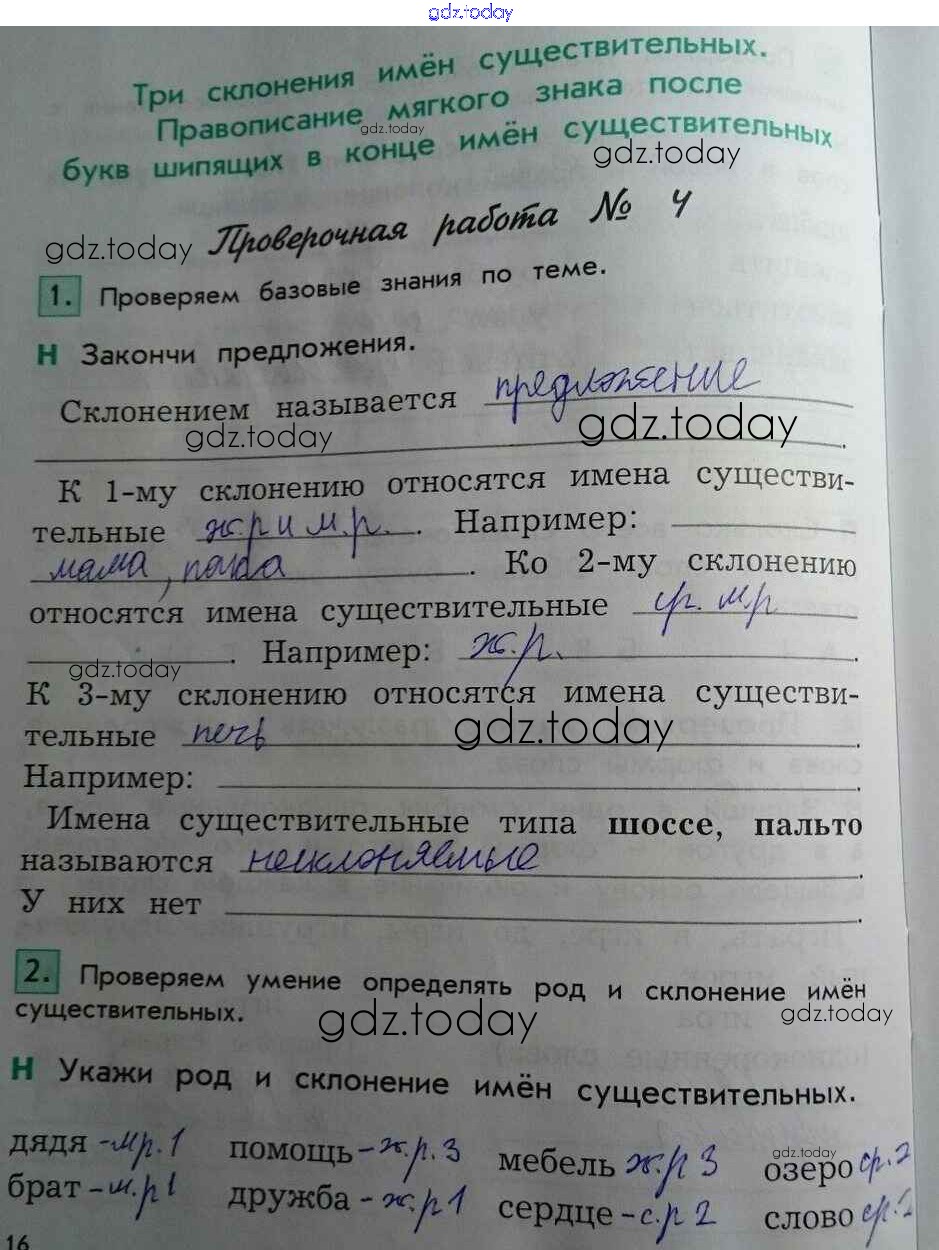 gdz.today
Три склонения имён существительных.
Правописание мягкого знака после
gdz.today
букв шипящих в конце имён существительных
gdz.today
gdz.today
Проверочная работа № 4
1. Проверяем базовые знания по теме.
Н Закончи предложения.
Склонением называется предложение
gdz.today
gdz.today
К 1-му склонению относятся имена существи-
тельные ж.р и м.р. . Например:
мама, папа . Ко 2-му склонению
относятся имена существительные ср. м.р
gdz.today
. Например: ж.р. .
К 3-му склонению относятся имена существи-
тельные печь .
gdz.today
Например: .
Имена существительные типа шоссе, пальто
называются несклоняемые .
У них нет .
2. Проверяем умение определять род и склонение имён
существительных.
gdz.today
gdz.today
Н Укажи род и склонение имён существительных.
дядя - м.р. 1 помощь - ж.р. 3 мебель ж.р 3 озеро ср. 2
gdz.today
брат - м.р 1 дружба - ж.р 1 сердце - с.р 2 слово ср. 2
16